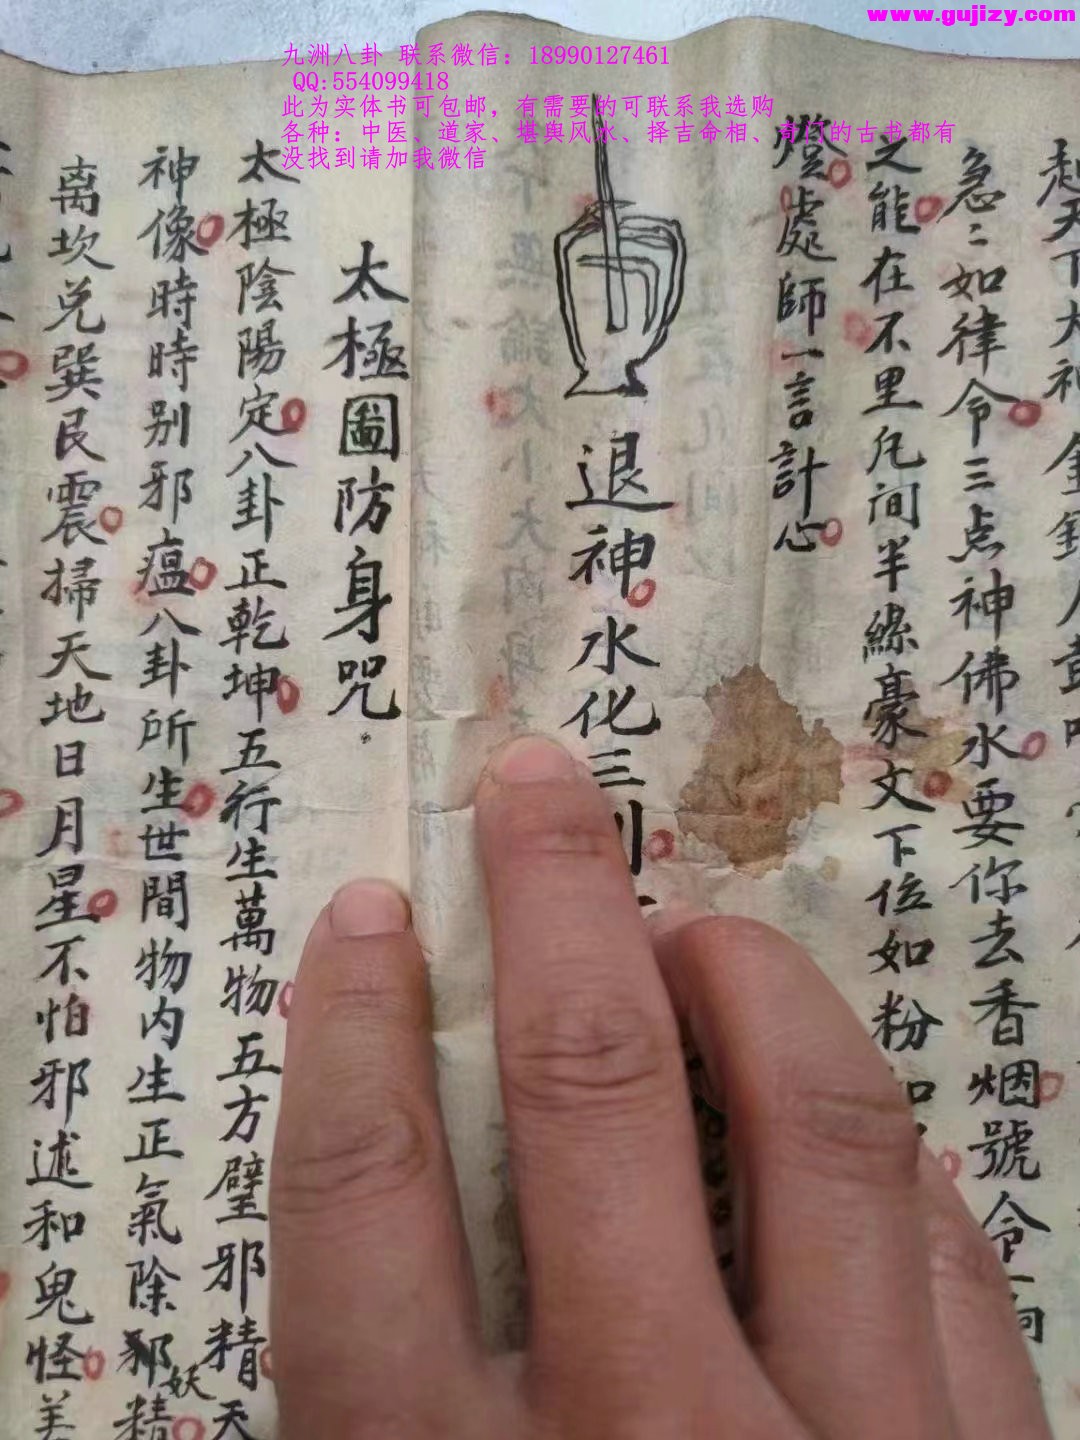 www.gujizy.com
九洲八卦 联系微信：18990127461
QQ:554099418
此为实体书可包邮，有需要的可联系我选购
各种：中医、道家、堪舆风水、择吉命相、奇门的古书都有
没找到请加我微信
起天下大神
急〻如律令三点神佛水要你去香烟號令
之能在不里凡间半絲豪文下位如粉如
燈處師一言計心
退神水化三
太極圖防身咒
太極陰陽定八卦正乾坤五行生萬物五方壁邪精天
神像時時别邪瘟八卦所生世間物内生正氣除邪妖精
离坎兑巽艮震掃天地日月星不怕邪述和鬼怪美